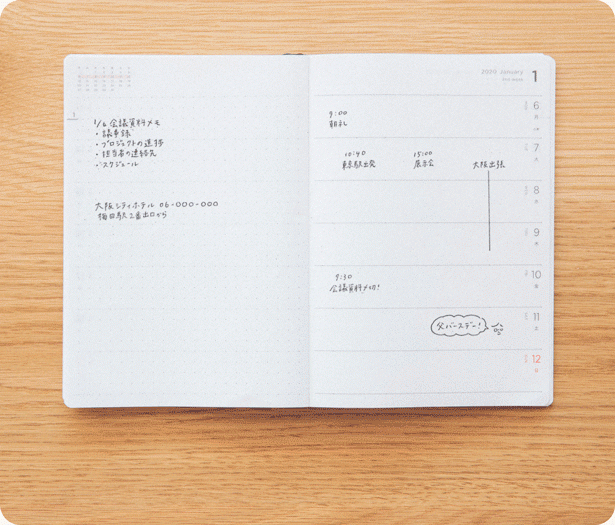 1
1/6 会議資料メモ
・議事録
・プロジェクトの進捗
・担当者の連絡先
・スケジュール
大阪シティホテル 06-000-000
梅田駅2番出口から
2020 January
1
6
月
9:00
朝礼
7
火
10:40 15:00
東京駅出発 展示会 大阪出張
8
水
9
木
10
金
9:30
会議資料〆切!
11
土
父バースデー!
12
日